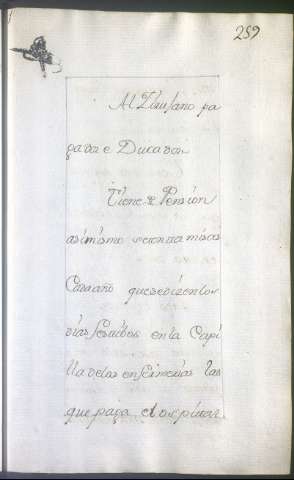 259
Al Zirujano pa
ga doze Ducados
Tiene de Pension
asimismo sesenta misas
Cada año que se dizen los
dias festibos en la Capi
lla de las enfermerias las
que paga el ospital